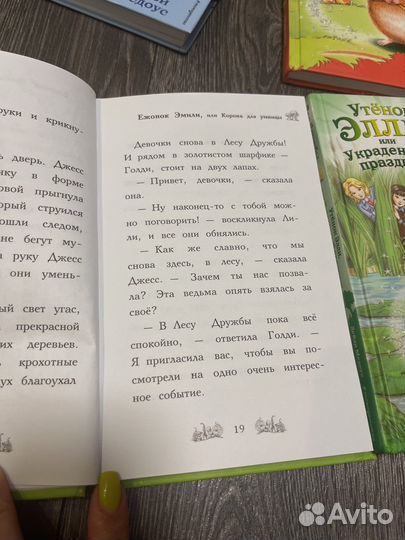 ЕДОУС
руки и крикну-
дверь. Джесс
нку в форме
овой прыгнула
орый струился
ошли следом,
не бегут му-
ы руку Джесс
они умень-
ый свет угас,
прекрасной
их деревьев.
крохотные
ух благоухал
Ежонок Эмили, или Корона для умницы
Девочки снова в Лесу Дружбы!
И рядом в золотистом шарфике —
Голди, стоит на двух лапах.
— Привет, девочки, — сказала
она.
— Ну наконец-то с тобой мож-
но поговорить! — воскликнула Ли-
ли, и все они обнялись.
— Как же славно, что мы
снова здесь, в лесу, — сказала
Джесс. — Зачем ты нас позва-
ла? Эта ведьма опять взялась за
своё?
— В Лесу Дружбы пока всё
спокойно, — ответила Голди. —
Я пригласила вас, чтобы вы по-
смотрели на одно очень интерес-
ное событие.
19
Утёнок
ЭЛЛИ
или
Украден
праздн
Avito